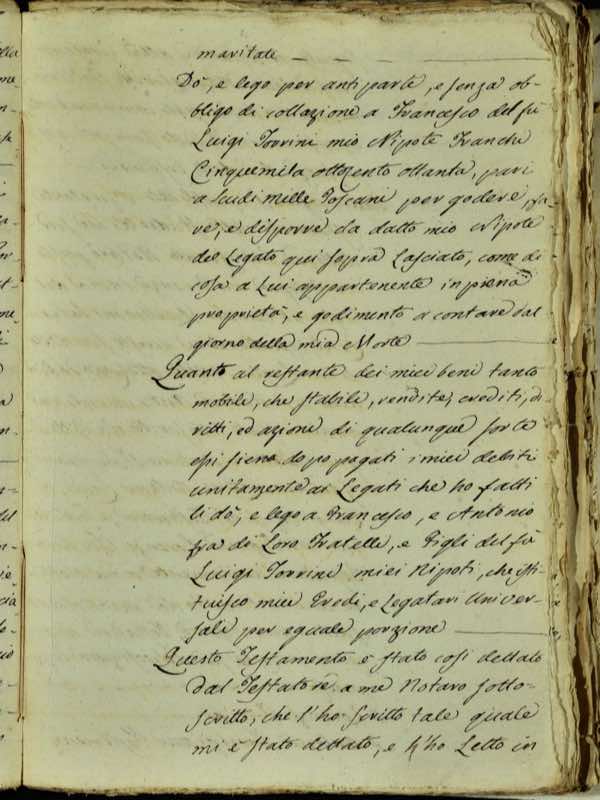 maritate
Dò, e lego per antiparte, e senza ob-
bligo di collazione a Francesco del fù
Luigi Torrini mio Nipote Franchi
Cinquemila ottocento ottanta, pari
a Scudi Mille Toscani per godere, fa-
re, e disporre da datto mio Nipote
del Legato qui sopra Lasciato, come di
cosa a Lui appartenente in piena
proprietà, e godimento a contare dal
giorno della mia Morte
Quanto al restante dei miei beni tanto
mobile, che stabile, rendite, crediti, di-
ritti, ed azione di qualunque sorte
essi sieno dopo pagati i miei debiti
unitamente ai Legati che ho fatti
li dò, e lego a Francesco, e Antonio
fra di Loro Fratelli, e Figli del fù
Luigi Torrini miei Nipoti, che isti-
tuisco miei Eredi, e Legatari Univer-
sali per eguale porzione
Questo Testamento è stato così dettato
dal Testatore a me Notaro sotto-
scritto, che l'ho scritto tale quale
mi è stato dettato, e l'ho Letto in